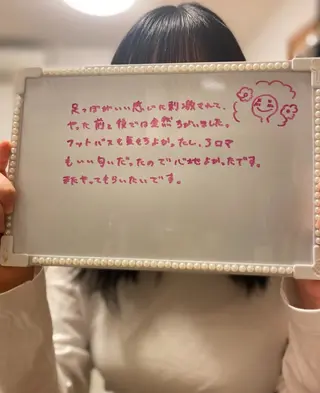 足つぼがいい感じに刺激されて、
やった前と後では全然ちがいました。
フットバスも気もちよかったし、アロマ
もいい匂いだったので心地よかったです。
またやってもらいたいです。